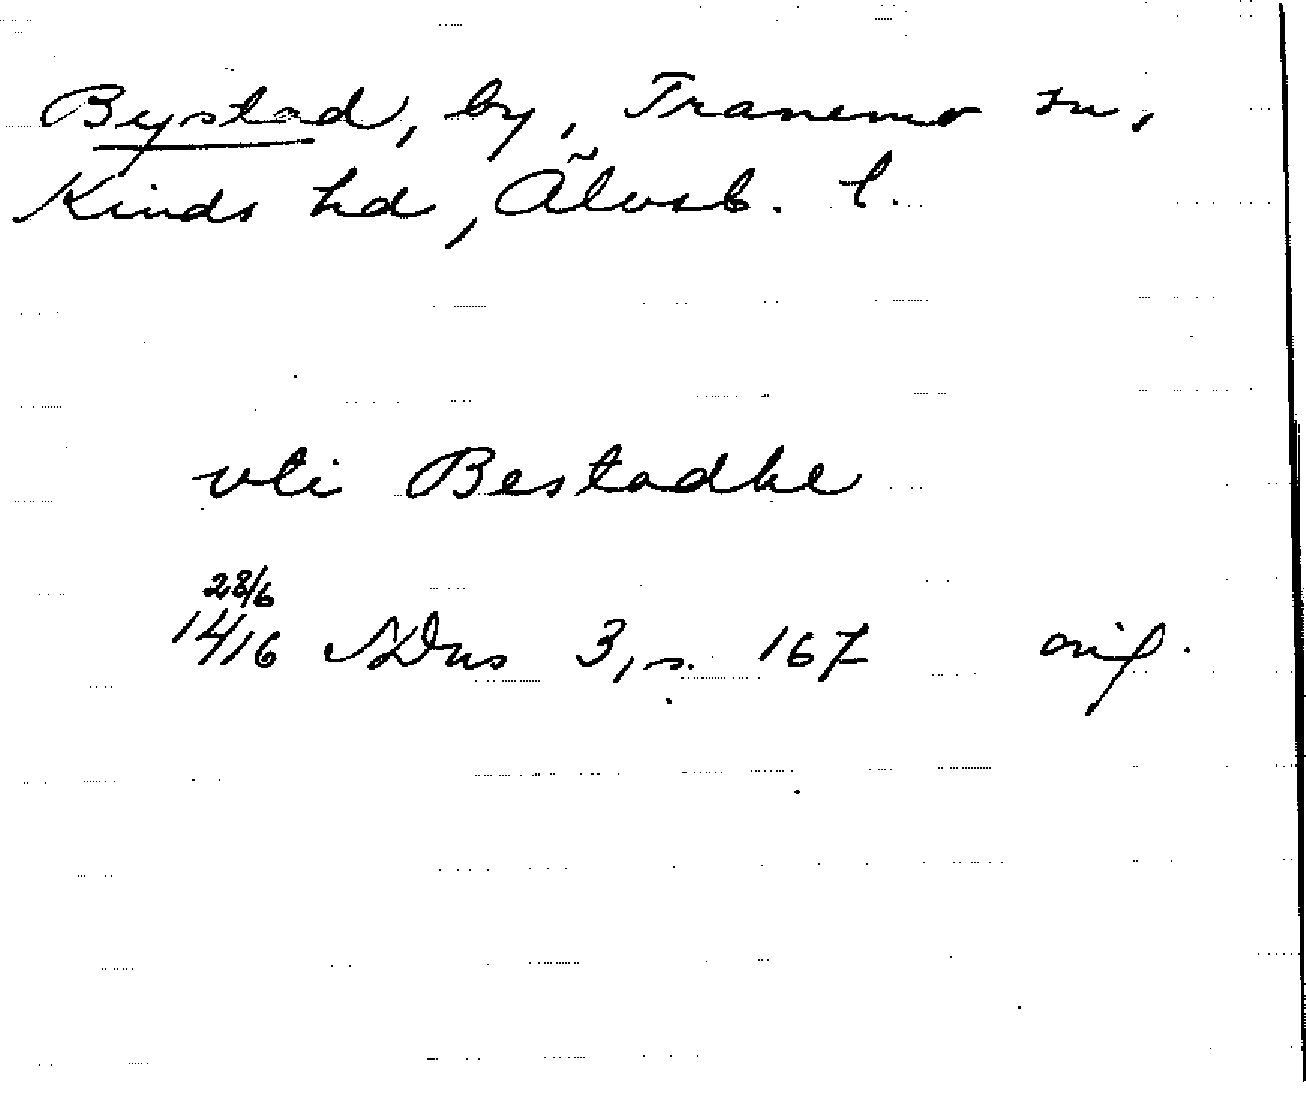 Bystad, by, Tranemo sn,
Kinds hd, Älvsb. l.
vti Bestadhe
28/6
1416 SDns 3, s. 167 orig.